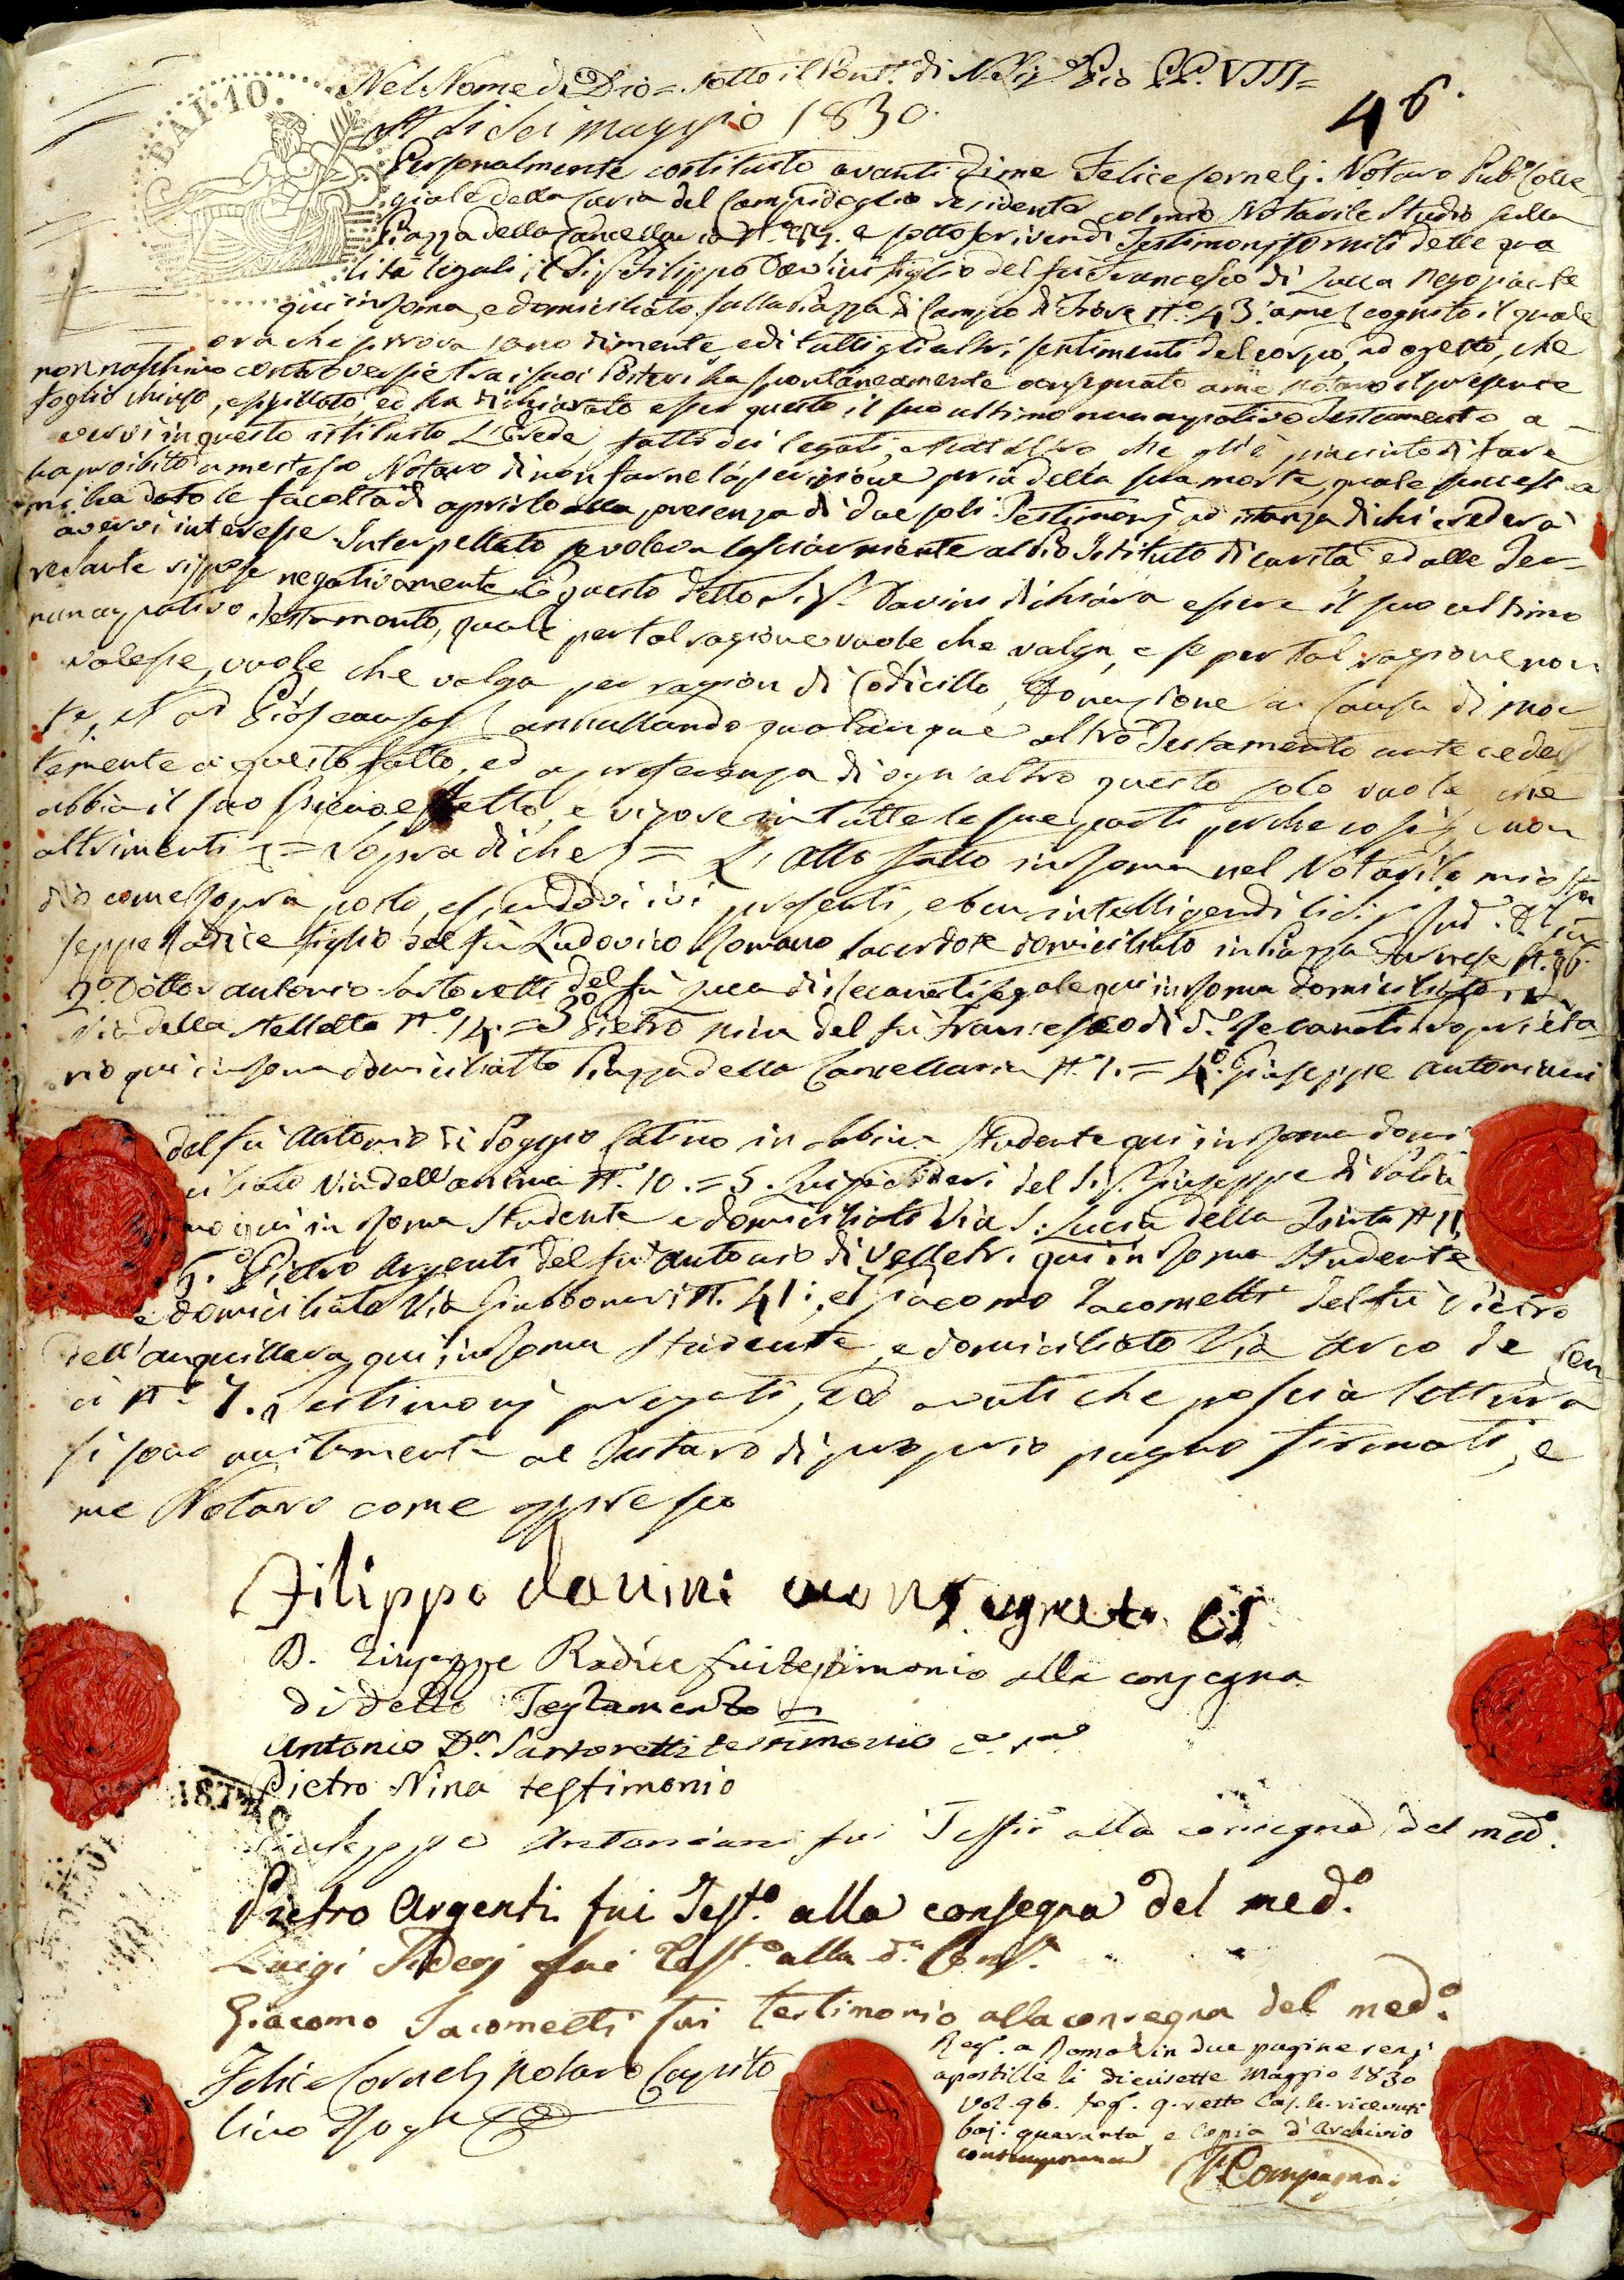 BAI. 10.
Nel Nome di Dio = sotto il Pont.o di N. S. Pio PP. VIII =
46.
A dì sei maggio 1830.
Personalmente costituito avanti di me Felice Cornelj Notaro Pub.o Colle-
giale della Curia del Campidoglio residente col mio Notarile Studio sulla
Piazza della Cancelleria e sottoscrivendi Testimonj forniti delle qua
lità legali, il Sig. Filippo Davini figlio del fù Francesco di Lucca Negoziante
qui in Roma, e domiciliato sulla Piazza di Campo di Fiore N.o 43. a me cognito il quale
ora che trova sano di mente, ed di tutti gli altri sentimenti del corpo, ad ogetto, che
non naschino controversie tra i suoi Posteri ha spontaneamente consegnato a me Notaro il presente
foglio chiuso, e sigillato, ed ha dichiarato esser questo il suo ultimo nuncupativo Testamento, a-
vervi in questo istituito L'Erede, fatto dei legati, e tutt'altro che gli è piaciuto di fare
ha proibito a me stesso Notaro di non farne l'aperizione pria della sua morte, quale successa
mi ha dato le facoltà di aprirlo alla presenza di due soli Testimonj ad istanza di chi crederà
avervi interesse. Interpellato se voleva lasciar niente al Pio Istituto di carità, ed alle Ter-
re Sante rispose negativamente E questo detto Sig. Davini dichiara essere il suo ultimo
nuncupativo Testamento, quale per tal ragione vuole che valga, e se per tal ragione non
valesse, vuole che valga per ragion di Codicillo, Donazione a causa di mor
te, et ad Pias causas annullando qualunque altro Testamento anteceden
temente a questo fatto, ed a preferenza di ogn'altro questo solo vuole, che
abbia il suo pieno effetto, e vigore in tutte le sue parti perche così, e non
altrimenti = Sopra di che = L'Atto fatto in Roma nel Notarile mio Stu
dio come sopra posto, essendovi ivi presenti, e ben intelligendi li Sig. D. Giu
seppe Radice figlio del fù Ludovico Romano Sacerdote domiciliato in Piazza Farnese N. 96.
2.o Dottor Antonio Sartoretti del fù Luca di Recanati legale qui in Roma domiciliato in
Via della Stelletta N.o 14. = 3.o Pietro Nina del fù Francesco di d.o Recanati proprieta
rio qui in Roma domiciliato Piazza della Cancelleria N. 1. = 4.o Giuseppe Antoniani
del fù Antonio di Poggio Catino in Sabina Studente qui in Roma domi
ciliato Via dell'anima N. 10. = 5. Luigi Tideri del Sig. Giuseppe di
no qui in Roma Studente e domiciliato Via S. Lucia della Tinta N 11
6.o Pietro Argenti del fù Antonio di Velletri qui in Roma Studente
e domiciliato Via Giubbonari N. 41; e 7 Giacomo Iacometti del fù Pietro
dell'anquillara qui in Roma Studente, e domiciliato Via Arco de Cen
ci N.o 7. Testimonj pregati, ed avuti che poscia lettura
si sono unitamente al Testaro di proprio pugno firmati, e
me Notaro come appresso
Filippo davini o consegnato
D. Giuseppe Radice fui testimonio alla consegna
di detto Testamento
Antonio D.r Sartoretti testimonio
Pietro Nina testimonio
Giuseppe Antoniani fui Test.o alla consegna del med.o
Pietro Argenti fui Test.o alla consegna del med.o
Luigi Tiderj fui Test.o alla d.a Cons.a
Giacomo Iacometti fui testimonio alla consegna del med.o
Felice Cornelj Notaro Capito
lino Rog.o
Reg.o a Roma in due pagine senz
apostille li diecisette Maggio 1830
vol. 96. fog. 9. retto Cas. le. ricevuti
baj. quaranta e Copia d'Archivio
contemporanea
Compagnoni